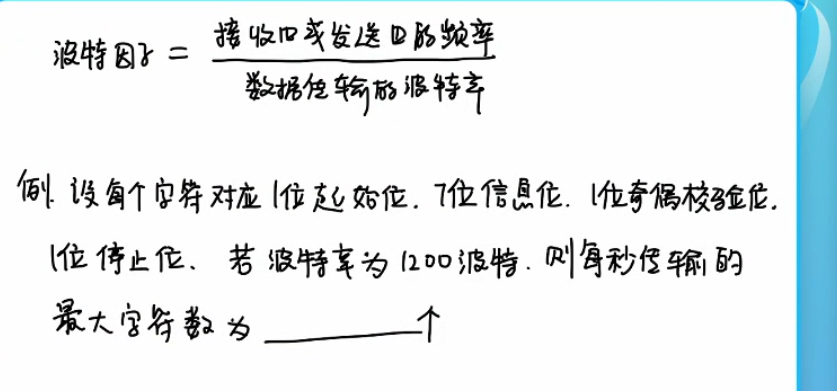 波特因子 = 接收口或发送口的频率
数据传输的波特率
例. 设每个字符对应1位起始位. 7位信息位. 1位奇偶校验位.
1位停止位、若波特率为1200波特. 则每秒传输的
最大字符数为______个